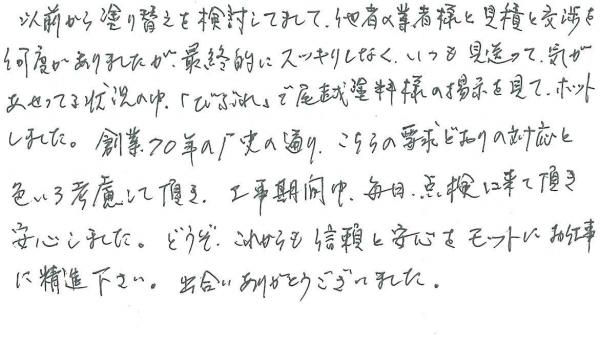 以前から塗り替えを検討してまして、他者の業者様と見積と交渉を
何度かありましたが、最終的にスッキリしなく、いつも見送って、気が
あせってる状況の中、「びぶれ」で尾越塗料様の掲示を見て、ホット
しました。創業70年の歴史の通り、こちらの要求どおりの対応と
色いろ考慮して頂き、工事期間中、毎日、点検に来て頂き
安心しました。どうぞ、これからも信頼と安心をモットにお仕事
に精進下さい。出合いありがとうございました。